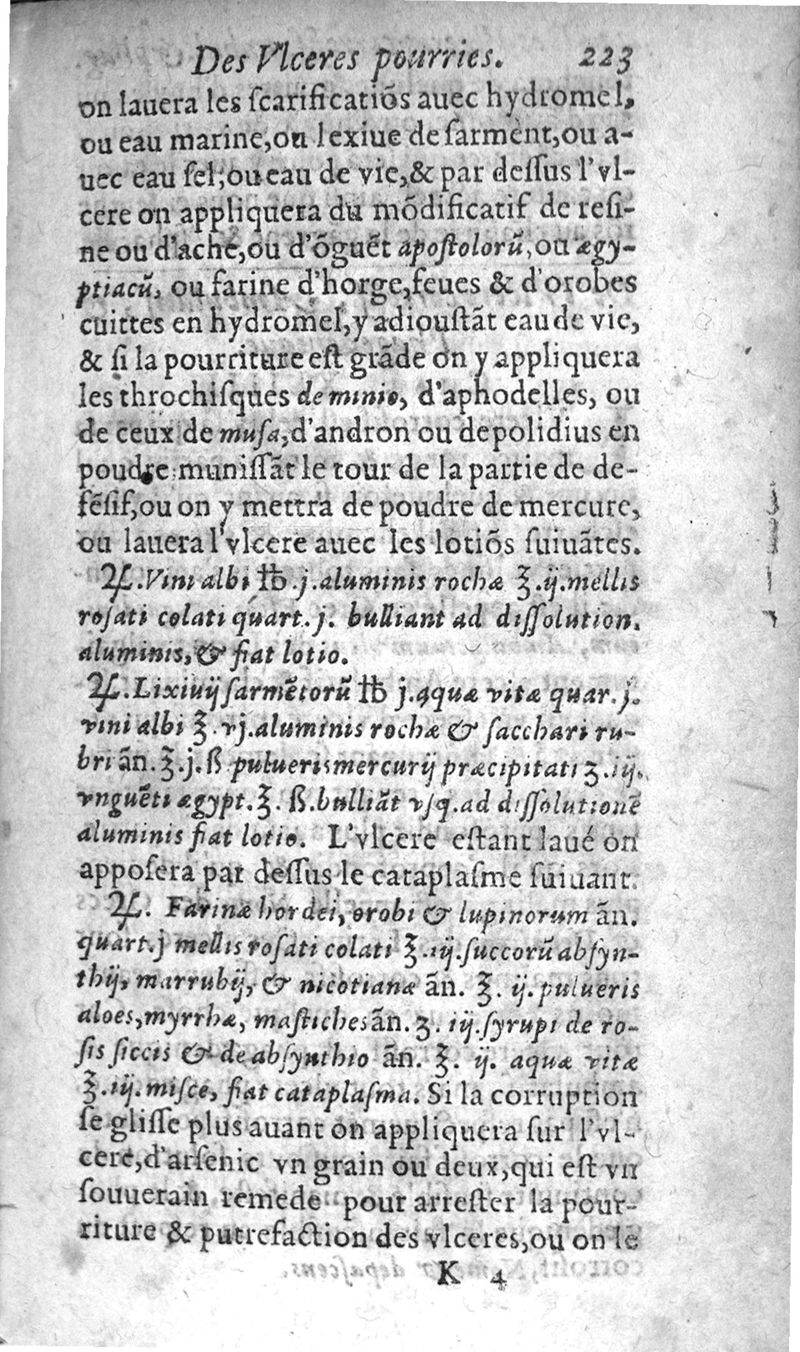 Des Vlceres pourries. 223
on lauera les ſcarificatiõs auec hydromel,
ou eau marine,ou lexiue de ſarment,ou a-
uec eau ſel,ou eau de vie,& par deſſus l'vl-
cere on appliquera du mõdificatif de reſi-
ne ou d'ache,ou d'õguẽt apoſtolorũ,ou ægy-
ptiacũ, ou farine d'horge,feues & d'orobes
cuittes en hydromel,y adiouſtãt eau de vie,
& ſi la pourriture eſt grãde on y appliquera
les throchiſques de minio, d'aphodelles, ou
de ceux de muſa,d'andron ou de polidius en
poudre muniſſãt le tour de la partie de de-
fẽſif,ou on y mettra de poudre de mercure,
ou lauera l'vlcere auec les lotiõs ſuiuãtes.
♃.Vini albi ℔.j.aluminis rochæ ℥.ij.mellis
roſati colati quart.j. bulliant ad diſſolution.
aluminis,& fiat lotio.
♃.Lixiuij ſarmẽtorũ ℔ j.aquæ vitæ quar.j.
vini albi ℥.vj.aluminis rochæ & ſacchari ru-
bri ãn.℥.j.ß pulueris mercurij præcipitati ʒ.iij.
vnguẽti ægypt.℥. ß.bulliãt vſq.ad diſſolutionẽ
aluminis fiat lotio. L'vlcere eſtant laué on
appoſera par deſſus le cataplaſme ſuiuant.
♃. Farinæ hordei, orobi & lupinorum ãn.
quart.j mellis roſati colati ℥.iij.ſuccorũ abſyn-
thij, marrubij, & nicotianæ ãn. ℥. ij.pulueris
aloes,myrrhæ, maſtiches ãn. ʒ. iij.ſyrupi de ro-
ſis ſiccis & de abſynthio ãn. ℥. ij. aquæ vitæ
℥.iij.miſce, fiat cataplaſma. Si la corruption
ſe gliſſe plus auant on appliquera ſur l'vl-
cere,d'arſenic vn grain ou deux,qui eſt vn
ſouuerain remede pour arreſter la pour-
riture & putrefaction des vlceres,ou on le
K 4